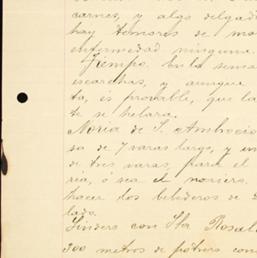 carnes, y algo delgad
hay temores de mo
enfermedad ninguna.
Tiempo. En la sema
escarchas, y aunque
ta, es probable, que la
te se helara.
Noria de S. Ambrocio
sa de 7 varas largo, y un
de tres varas, para el
ria, ó sea el noriero.
hacer dos bebideros de
lado.
Linderos con Sta Rosal
300 metros de potrero con